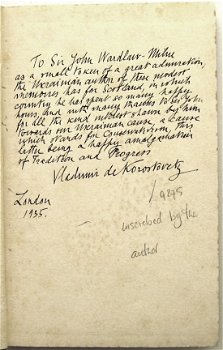 To Sir John Wardlaw-Milne
as a small token of a great admiration,
the Ukrainian author of these modest
memories has for Scotland, in which
country he has spent so many happy
hours, and with many thanks to Sir John
for all the kind interest shown by him
towards our Ukrainian cause, a cause
which stands for Conservatism, this
latter being a happy amalgamation
of Tradition and Progress
Vladimir de Korostovetz
London
1935.
/ 9295
inscribed by the
author